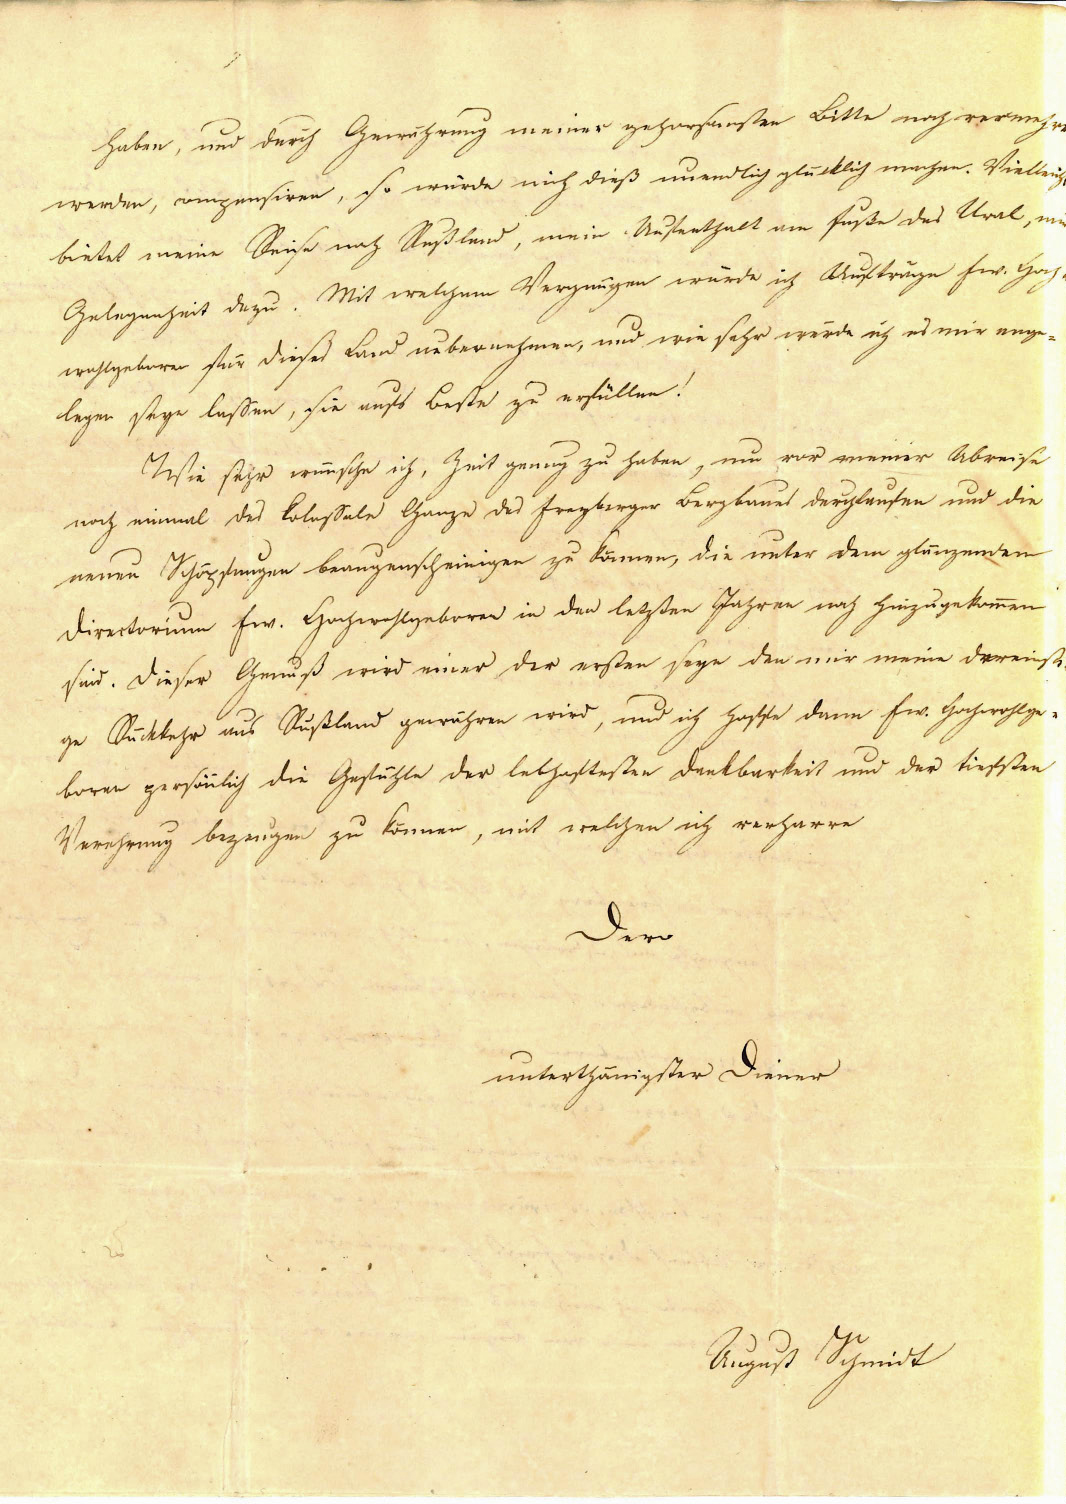 haben, und durch Gewährung meiner gehorsamsten Bitte noch vermehre
werden, compensiren, so würde mich dieß unendlich glücklich machen. Vielleicht
bietet meine Reise nach Rußland, mein Aufenthalt am Fuße des Ural, mir
Gelegenheit dazu. Mit welchem Vergnügen würde ich Aufträge Ew. Hoch-
wohlgeboren für dieses Land uebernehmen, und wie sehr würde ich es mir ange-
legen seyn lassen, sie aufs Beste zu erfüllen!
Wie sehr wünsche ich, Zeit genug zu haben, um vor meiner Abreise
noch einmal das kolossale Ganze des Freyberger Bergbaues durchlaufen und die
neuen Schöpfungen beaugenscheinigen zu können, die unter dem glänzenden
Directorium Ew. Hochwohlgeboren in den letzten Jahren noch hinzugekommen
sind. Dieser Genuß wird einer der ersten seyn den mir meine dereinsti-
ge Rückkehr aus Rußland gewähren wird, und ich hoffe dann Ew. Hochwohlge-
boren persönlich die Gefühle der lebhaftesten Dankbarkeit und der tiefsten
Verehrung bezeugen zu können, mit welchen ich verharre
Dero
unterthänigster Diener
August Schmidt